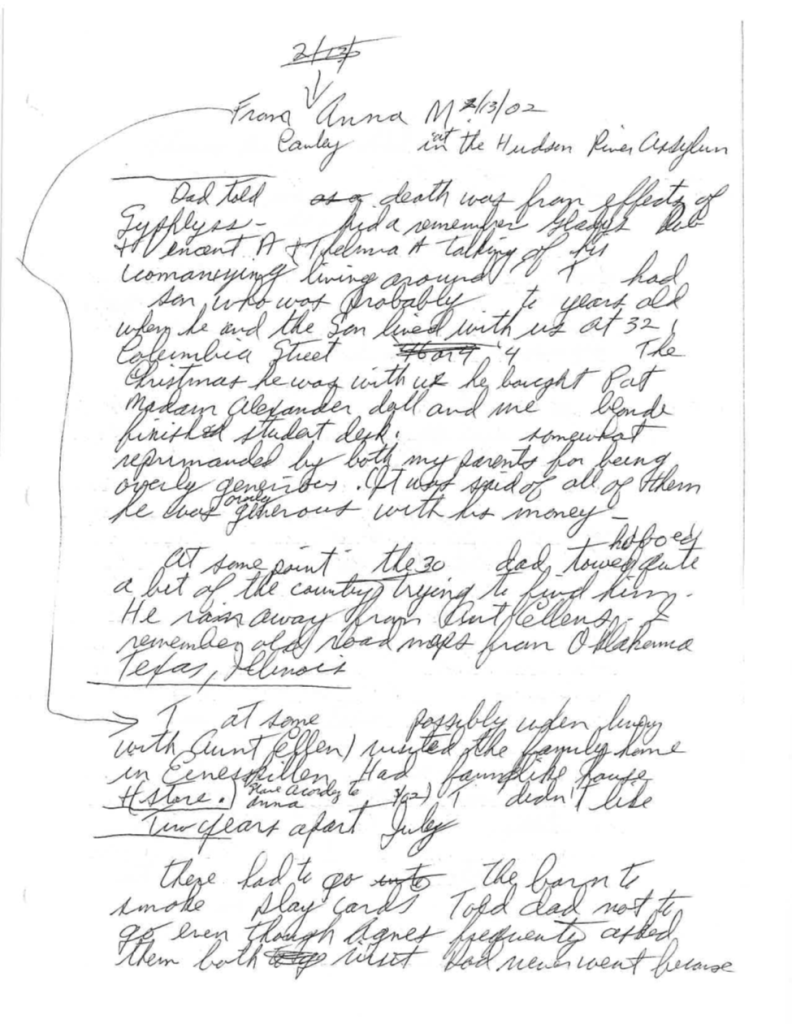 2/12
From Anna M 2/13/02
Cauley at in the Hudson River Assylum
Dad told as a death was from effects of
Syphlyss - had a remember Gladys Deb
+ Vincent A + Thelma A talking of his
womanizing living around T had
son, who was probably to years old
when he and the Son lived with us at 32
Columbia Street '4 The
Christmas he was with us he bought Pat
Madam Alexander doll and me blonde
finished student desk. somewhat
reprimanded by both my parents for being
overly generous. It was said of all of them
he was overly generous with his money -
hoboed
At some point the 30 dad towed quite
a bit of the country trying to find him.
He ran away from Aunt Ellens. I
remember old road maps from Oklahoma
Texas, Illinois
T at some possibly when living
with Aunt Ellen) visited the family home
in Eineskillen Had farm like house
+ store.) according to Anna 3/02) T didn't like
Two years apart July
there had to go into the barn to
smoke play cards Told dad not to
go even though Agnes frequenty asked
them both visit Dad never went because